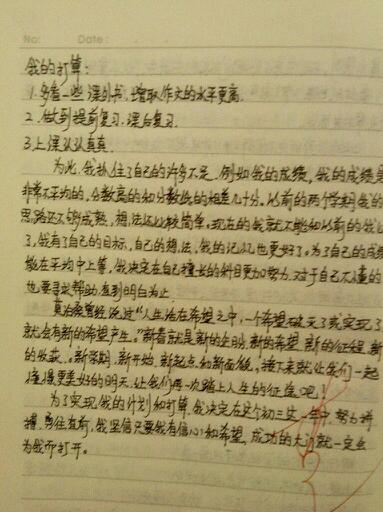 No: Date:
我的打算:
1.多看一些课外书,增取作文的水平更高.
2.做到提前复习,课后复习.
3.上课认认真真.
为此,我抓住了自己的许多不足,例如我的成绩,我的成绩是
非常不平均的,分数高的和分数低的相差几十分.以前的两个学期我的
思路还不够成熟,想法还比较简单,现在的我就不能和以前的我比
了,我有了自己的目标,自己的想法,我的记忆也更好了.为了自己的成绩
能在平均中上等,我决定在自己擅长的科目更加努力.对于自己不懂的
也要寻求帮助,直到明白为止.
莫泊桑曾经说过"人生活在希望之中,一个希望破灭了或实现了,
就会有新的希望产生。"新春就是新的生日,新的希望,新的征程,新
的收获。新学期,新开始,新起点和新面貌。接下来就让我们一起
撞得更美好的明天,让我们再一次踏上人生的征途吧!
为了实现我的计划和打算,我决定在这个初三这一年中,努力拼
搏,勇往直前,我坚信只要我有信心和希望,成功的大门就一定会
为我而打开。